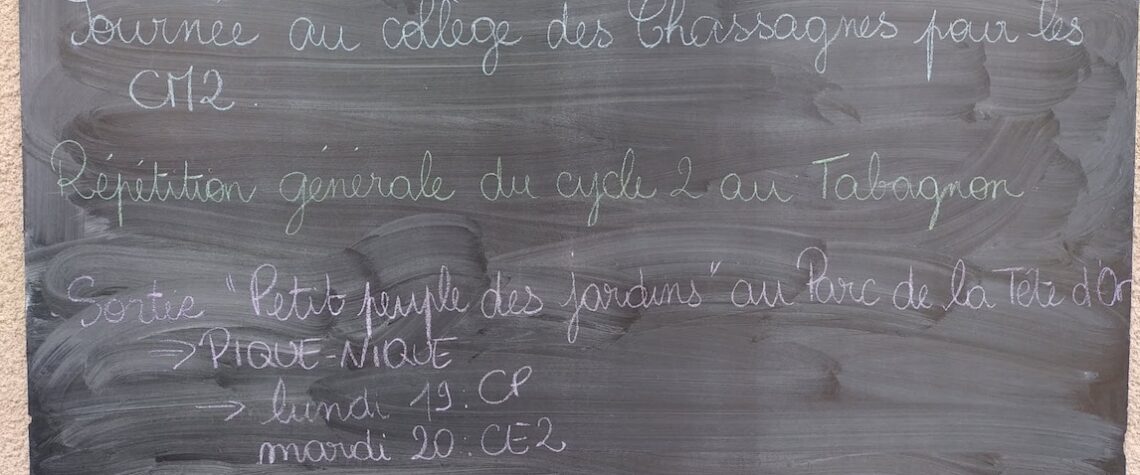 Journée au collège des Chassagnes pour les
CM2.
Répétition générale du cycle 2 au Tabagnon
Sortie "Petit peuple des jardins" au Parc de la Tête d'Or
=> PIQUE-NIQUE
-> lundi 19 : CP
mardi 20 : CE2